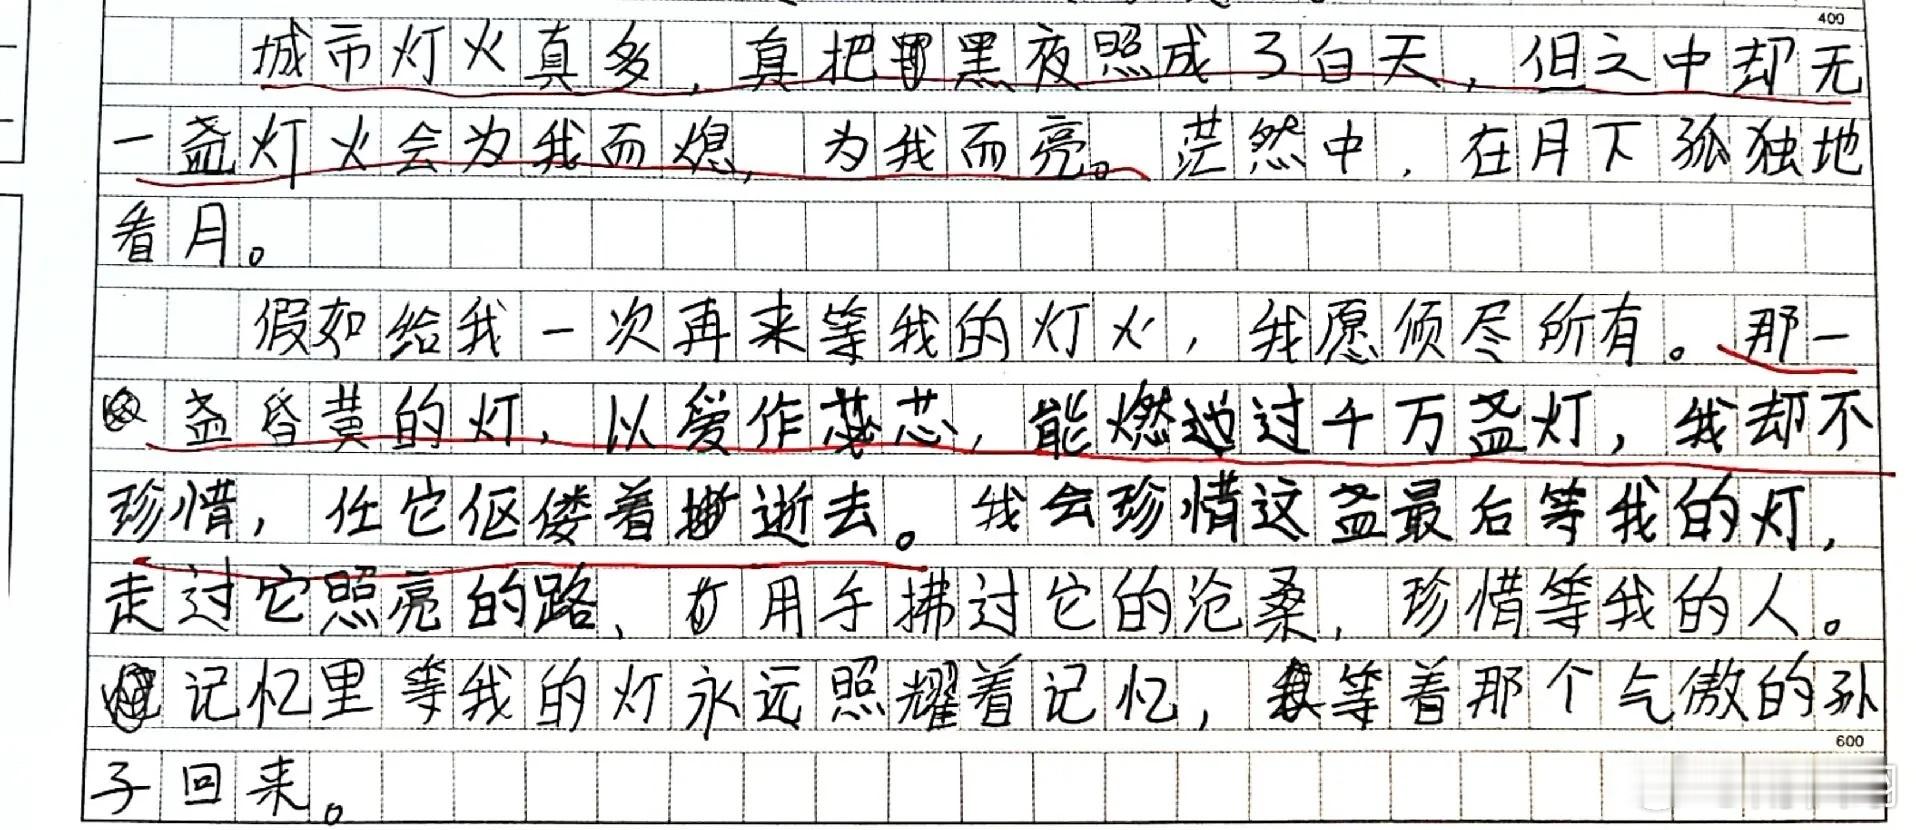 400
城市灯火真多，真把黑夜照成了白天，但之中却无
一盏灯火会为我而熄，为我而亮。茫然中，在月下孤独地
看月。
假如给我一次再来等我的灯火，我愿倾尽所有。那一
盏昏黄的灯，以爱作芯，能燃过千万盏灯，我却不
珍惜，任它伛偻着逝去。我会珍惜这盏最后等我的灯，
走过它照亮的路，用手拂过它的沧桑，珍惜等我的人。
记忆里等我的灯永远照耀着记忆，等着那个气傲的孙
600
子回来。